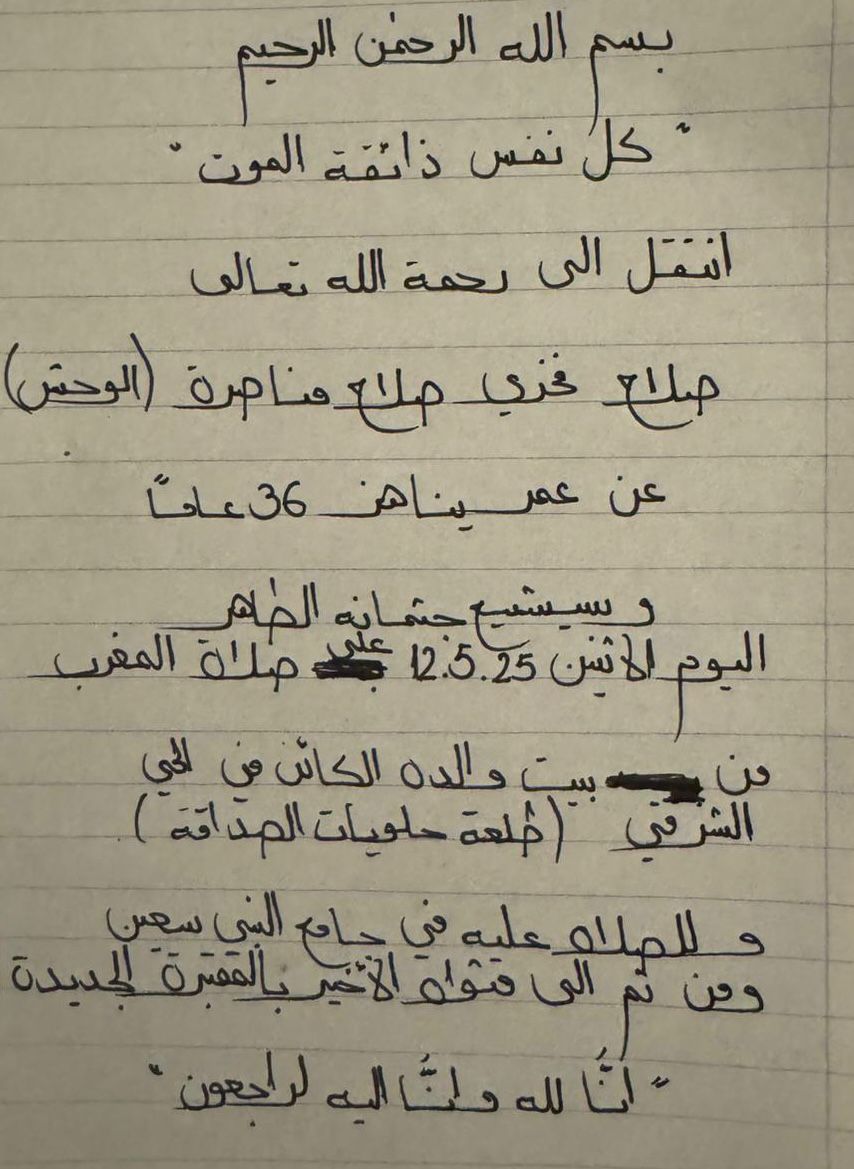 بسم الله الرحمٰن الرحيم
"كل نفس ذائقة الموت"
انتقل الى رحمة الله تعالى
صلاح فخري صلاح مناصرة (الوحش)
عن عمر يناهز 36 عاماً
وسيشيع جثمانه الطاهر
اليوم الاثنين 12.5.25 على صلاة المغرب
من بيت والده الكائن في الحي
الشرقي (طلعة حلويات الصداقة)
وللصلاه عليه في جامع النبي سعين
ومن ثم الى مثواه الأخير بالمقبرة الجديدة
"انَّا لله وانَّا اليه لراجعون"